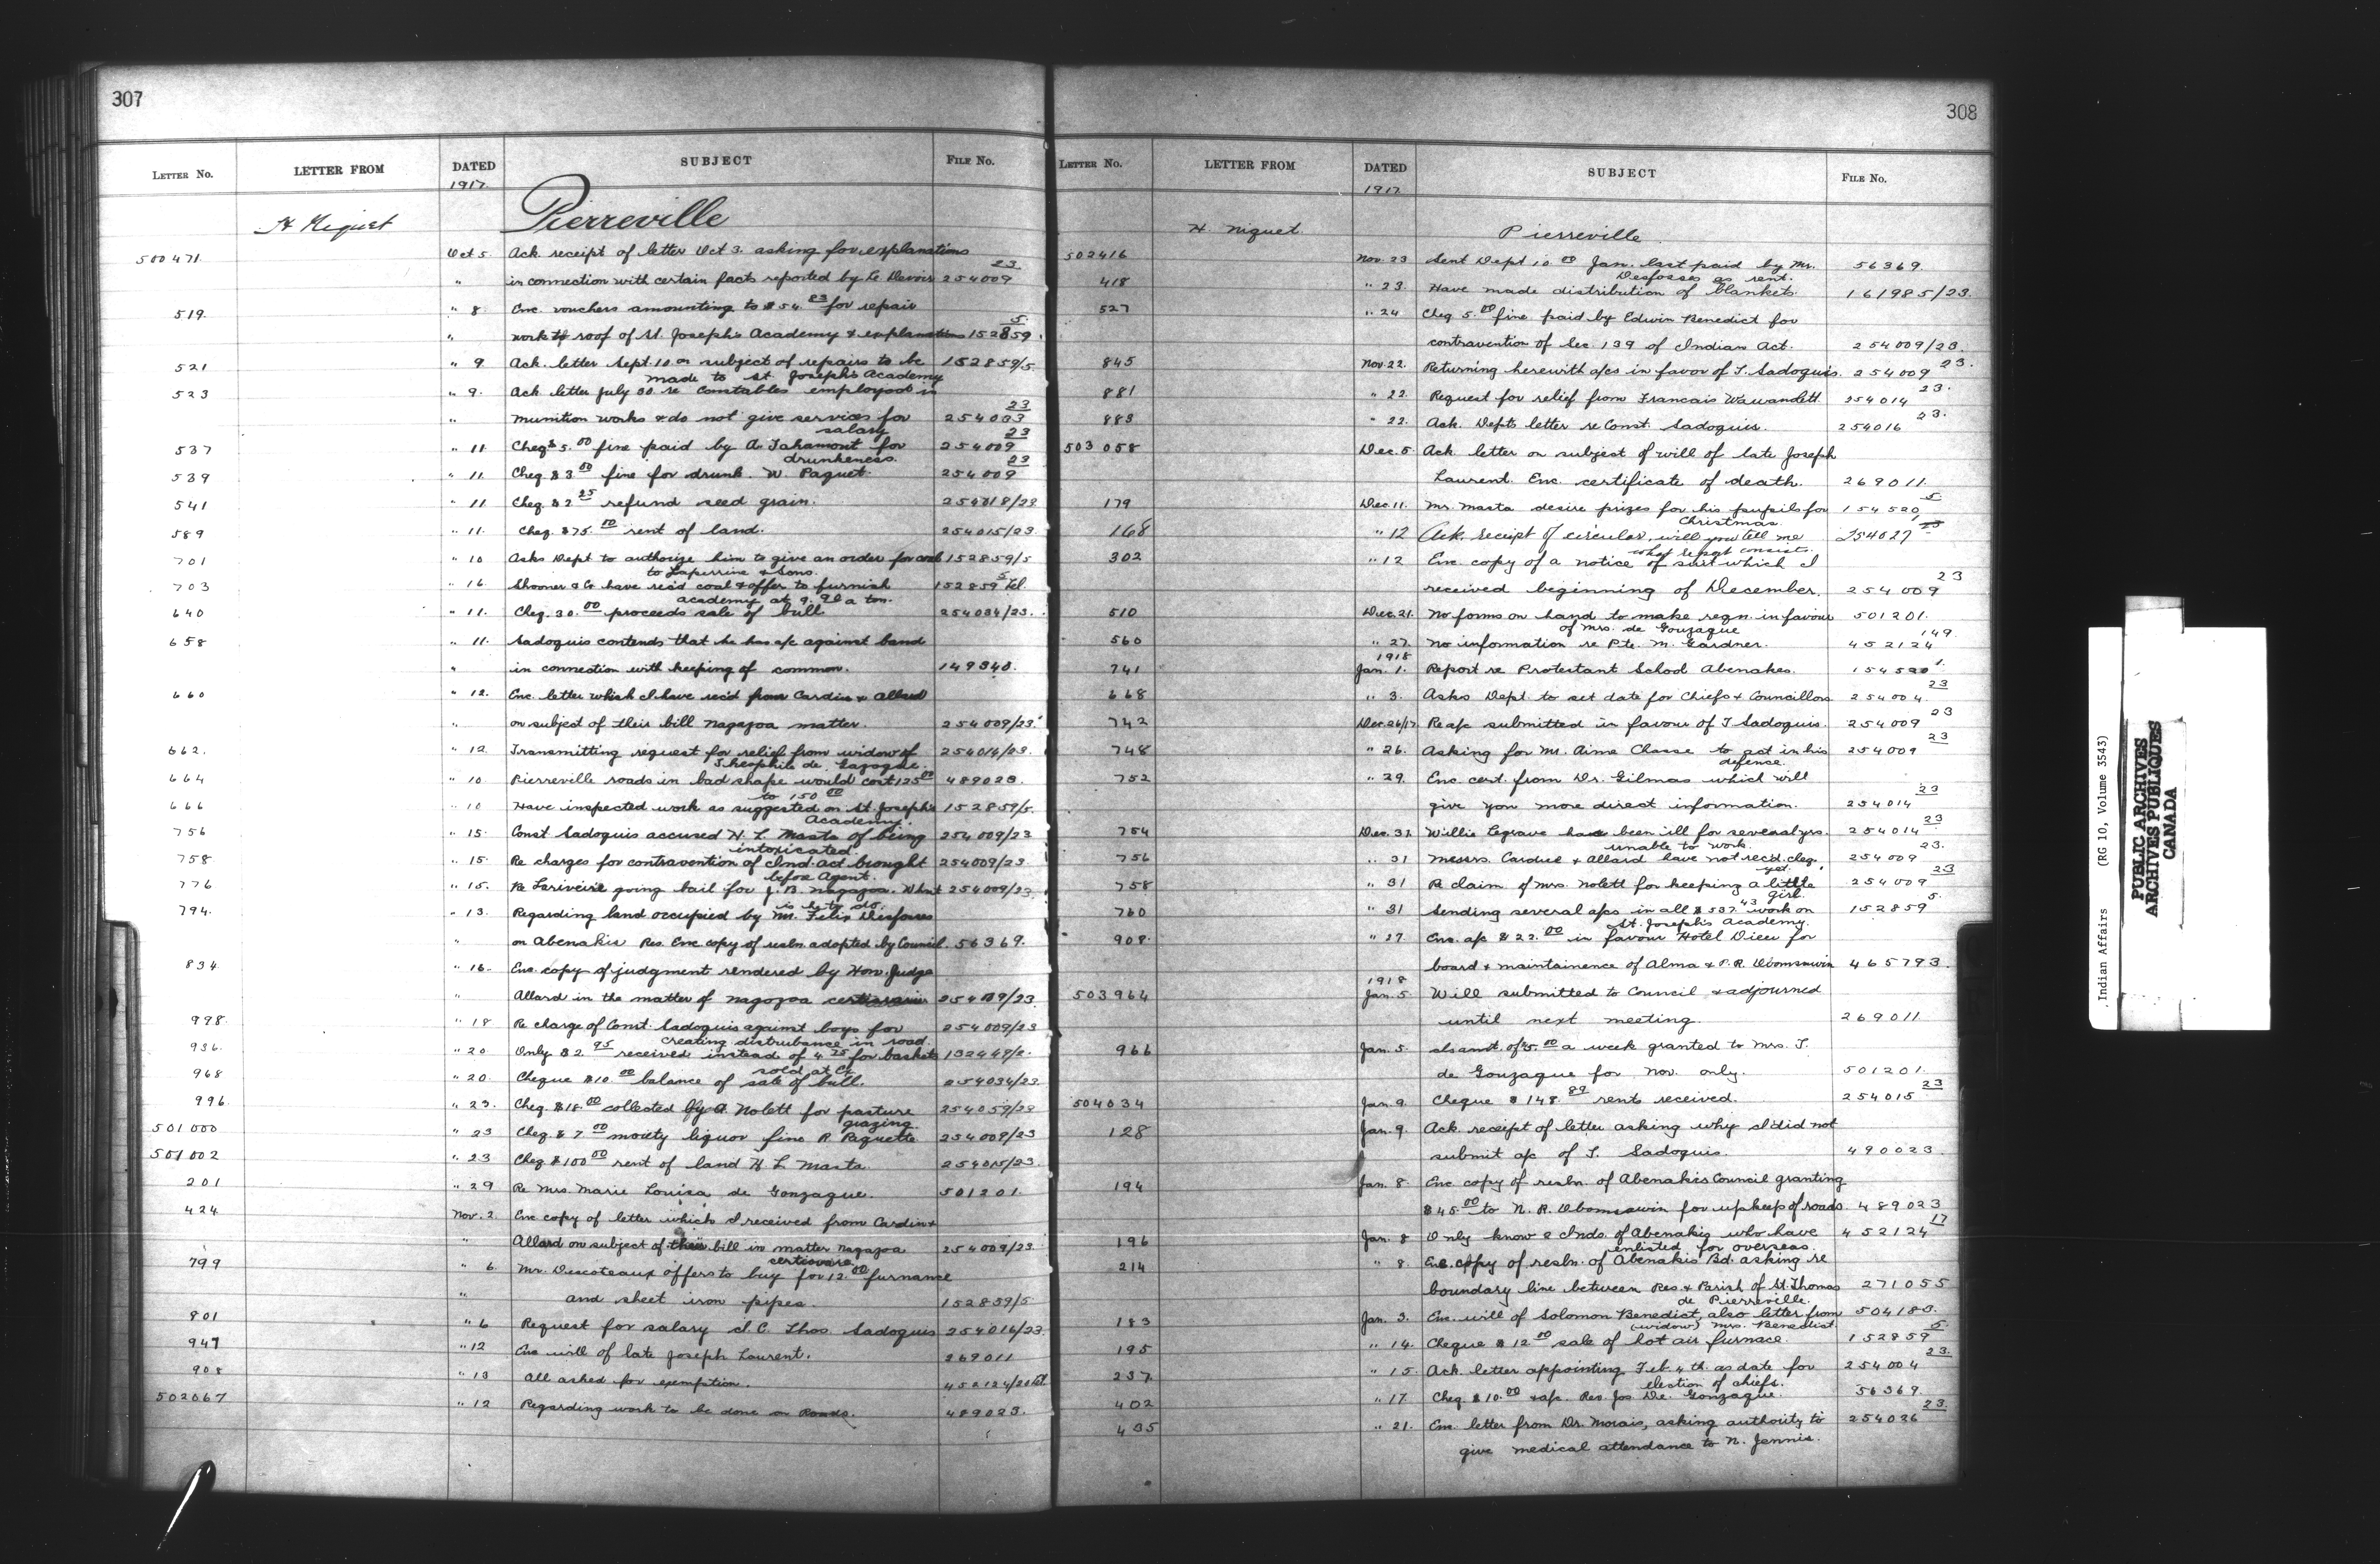 307
LETTER NO. LETTER FROM DATED SUBJECT FILE NO.
1917
H Niquet Pierreville
500471 Oct 5 Ack receipt of letter Oct 3. asking for explanations
" in connection with certain facts reported by Le Devoir 254009 23
519 " 8 Enc vouchers amounting to $54.83 for repair
" work to roof of St. Joseph's Academy & explanations 152859 5
521 " 9 Ack. letter Sept. 10 on subject of repairs to be 152859/5
made to St. Joseph's Academy
523 " 9. Ack letter July 30 re Constables employed in
" munition works & do not give services for 254033 23
salary
537 " 11 Cheq $5.00 fine paid by A. Tahamont for 254009 23
drunkeness.
539 " 11. Cheq. $3.00 fine for drunk. W. Paquet 254009 23
541 " 11 Cheq. $2.25 refund seed grain. 254018/23
589 " 11. Cheq. $75.00 rent of land. 254015/23
701 " 10 Asks Dept to authorize him to give an order for coal 152859/5
to Laperrine & Sons.
703 " 16. Shooner & Co have rec'd coal & offer to furnish 152859 5 Tel.
academy at 9.90 a ton.
640 " 11. Cheq. 30.00 proceeds sale of bull 254034/23.
658 " 11. Sadoquis contends that he has a/c against band
" in connection with keeping of common. 149340.
660 " 12. Enc. letter which I have rec'd from Cardin & Allard
" on subject of their bill Nagazoa matter. 254009/23
662. " 12 Transmitting request for relief from widow of 254014/23.
Theophile de Gazagne.
664 " 10 Pierreville roads in bad shape would cost 125.00 489023.
to 150.00
666 " 10 Have inspected work as suggested on St. Joseph's 152859/5.
Academy.
756 " 15. Const Sadoquis accused H. L. Masta of being 254009/23
intoxicated.
758 " 15. Re charges for contravention of Ind. act brought 254009/23
before Agent.
776 " 15. Re Lariviere going bail for J. B. Nagazoa. What 254009/23
is he to do.
794. " 13. Regarding land occupied by Mr. Felix Desfosses
" on Abenakis Res. Enc copy of resln. adopted by Council. 56369.
834 " 16. Enc. copy of judgment rendered by Hon. Judge
" Allard in the matter of Nagazoa certiorari 254009/23
998. " 18 Re charge of Const. Sadoquis against boys for 254009/23
creating distrubance in road.
936. " 20. Only $2.95 received instead of 4.25 for baskets 132449/2.
sold at Ex.
968 " 20. Cheque $10.00 balance of sale of bull. 254034/23.
996. " 23. Cheq. $18.00 collected by A. Nolett for pasture 254059/23
grazing.
501000 " 23 Cheq. $7.00 moiety liquor fine R. Paquette 254009/23
501002 " 23 Cheq $100.00 rent of land H L Masta 254015/23.
201 " 29 Re Mrs. Marie Louisa de Gonzague. 501201.
424 Nov. 2 Enc copy of letter which I received from Cardin &
" Allard on subject of their bill in matter Nagazoa 254009/23
certiorari
799 " 6. Mr. Descoteaux offers to buy for 12.00 furnance
" and sheet iron pipes. 152859/5
801 " 6 Request for salary I. C. Thos. Sadoquis 254016/23.
947 " 12 Enc will of late Joseph Laurent. 269011
908 " 13 All asked for exemption. 452124/20 Tel.
502067 " 12 Regarding work to be done on Roads. 489023.
308
LETTER NO. LETTER FROM DATED SUBJECT FILE NO.
1917
H. Niquet. Pierreville
502416 Nov. 23 Sent Dept 10.00 Jan. last paid by Mr. 56369.
Desfosses as rent.
418 " 23. Have made distribution of blankets. 161985/23.
527 " 24 Cheq 5.00 fine paid by Edwin Benedict for
contravention of Sec. 139 of Indian Act. 254009/23.
845 Nov. 22. Returning herewith a/cs in favor of T. Sadoquis. 254009 23.
881 " 22. Request for relief from Francais Wawandett 254014 23.
883 " 22. Ack. Depts letter re Const. Sadoquis. 254016 23.
503058 Dec. 5 Ack letter on subject of will of late Joseph
Laurent. Enc. certificate of death. 269011.
179 Dec. 11. Mr. Masta desire prizes for his pupils for 154520 5
Christmas.
168 " 12 Ack. receipt of circular, will you tell me 254027 23
what report consist.
302 " 12 Enc. copy of a notice of suit which I
received beginning of December. 254009 23
510 Dec. 21. No forms on hand to make regn. in favour 501201.
of Mrs. de Gonzague
560 " 27. No information re Pte. M. Gardner. 452124 149.
1918
741 Jan. 1. Report re Protestant School Abenakes. 154520 1.
668 " 3. Asks Dept. to set date for Chiefs & Councillors 254004. 23
742 Dec. 26/17 Re a/c submitted in favour of T Sadoquis. 254009 23
748 " 26. Asking for Mr. Aime Chasse to act in his 254009 23
defence.
752 " 29. Enc. cert. from Dr. Gilmas which will
give you more direct information. 254014 23
754 Dec. 31. Willie Legrave has been ill for several yrs. 254014 23
unable to work.
756 " 31 Messrs. Cardin & Allard have not rec'd cheq. 254009 23.
yet.
758 " 31 Re claim of Mrs. Nolett for keeping a little 254009 23
girl.
760 " 31 Sending several a/cs in all $537.43 work on 152859 5.
St. Joseph's Academy.
908. " 27. Enc. a/c $22.00 in favour Hotel Dieu for
board & maintainence of Alma & P. R. Obomsawin 465793.
1918
503964 Jan. 5 Will submitted to Council & adjourned
until next meeting. 269011
966 Jan. 5. of $5.00 a week granted to Mrs. T.
de Gonzague for Nov. only. 501201.
504034 Jan. 9. Cheque $148.89 rents received. 254015 23
128 Jan. 9. Ack receipt of letter asking why I did not
submit a/c of T. Sadoquis. 490023.
194 Jan. 8. Enc copy of resln. of Abenakis Council granting
$45.00 to N. R. Obomsawin for upkeep of roads. 489023
196 Jan. 8 Only know 2 Inds. of Abenakis who have 452124 17
enlisted for overseas.
214 " 8. Enc. copy of resln. of Abenakis Bd. asking re
boundary line between Res. & Parish of St. Thomas 271055
de Pierreville.
183 Jan. 3. Enc. will of Solomon Benedict, also letter from 504183.
(widow) Mrs. Benedict
195 " 14. Cheque $12.00 sale of hot air furnace. 152859 5.
237. " 15. Ack. letter appointing Feb. 4 th. as date for 254004 23.
election of chiefs.
402 " 17. Cheq. $10.00 & a/c. Rev. Jos. De. Gonzague. 56369.
435 " 21. Enc. letter from Dr. Morais, asking authority to 254026 23.
give medical attendance to N. Jennis.
Indian Affairs (RG 10, Volume 3543)
PUBLIC ARCHIVES
ARCHIVES PUBLIQUES
CANADA